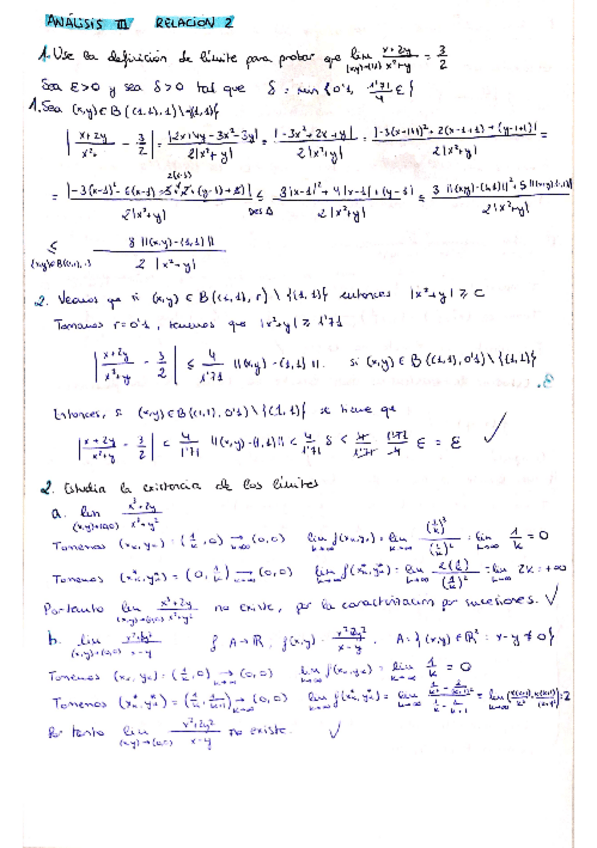 ANÁLISIS III RELACIÓN 2
1. Use la definición de límite para probar que lim (x,y)→(1,1) x+2y / x²+y = 3/2
Sea ε>0 y sea δ>0 tal que δ = min {0'1, 1'71/4 ε}
1. Sea (x,y) ∈ B((1,1),1)\{(1,1)}
| x+2y / x²+ - 3/2 | = |2x+4y-3x²-3y| / 2|x²+y| = |-3x²+2x+y| / 2|x²+y| = |-3(x-1+1)²+2(x-1+1)+(y-1+1)| / 2|x²+y| =
≤ 3|x-1|²+4|x-1|+|y-1| / 2|x²+y| ≤ 3||(x,y)-(1,1)||²+5||(x,y)-(1,1)|| / 2|x²+y|
≤ 8||(x,y)-(1,1)|| / 2|x²+y|
2. Veamos que si (x,y) ∈ B((1,1),r)\{(1,1)} entonces |x²+y| ≥ C
Tomamos r=0'1, tenemos que |x²+y| ≥ 1'71
| x+2y / x²+y - 3/2 | ≤ 4/1'71 ||(x,y)-(1,1)||. si (x,y) ∈ B((1,1),0'1)\{(1,1)}
Entonces, si (x,y) ∈ B((1,1),0'1)\{(1,1)} se tiene que
| x+2y / x²+y - 3/2 | < 4/1'71 ||(x,y)-(1,1)|| < 4/1'71 δ < 4/1'71 1'71/4 ε = ε ✓
2. Estudia la existencia de los límites
a. lim (x,y)→(0,0) x³+2y / x²+y²
Tomemos (xₖ,yₖ) = (1/k, 0) → k→∞ (0,0) lim k→∞ f(xₖ,yₖ) = lim k→∞ (1/k)³ / (1/k)² = lim k→∞ 1/k = 0
Tomemos (xₖ*,yₖ*) = (0, 1/k) → k→∞ (0,0) lim k→∞ f(xₖ*,yₖ*) = lim k→∞ 2(1/k) / (1/k)² = lim k→∞ 2k = +∞
Por tanto lim (x,y)→(0,0) x³+2y / x²+y² no existe, por la caracterización por sucesiones. ✓
b. lim (x,y)→(0,0) x²+2y² / x-y f A→ℝ, f(x,y) = x²+2y² / x-y, A = {(x,y) ∈ ℝ² : x-y ≠ 0}
Tomemos (xₖ,yₖ) = (1/k, 0) → k→∞ (0,0) lim k→∞ f(xₖ,yₖ) = lim k→∞ 1/k = 0
Por tanto lim (x,y)→(0,0) x²+2y² / x-y no existe. ✓